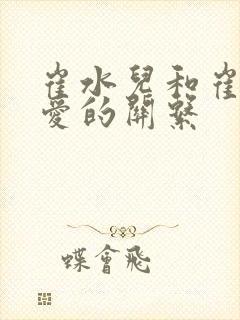 崔水兒和崔
愛的關系
蝶會飛